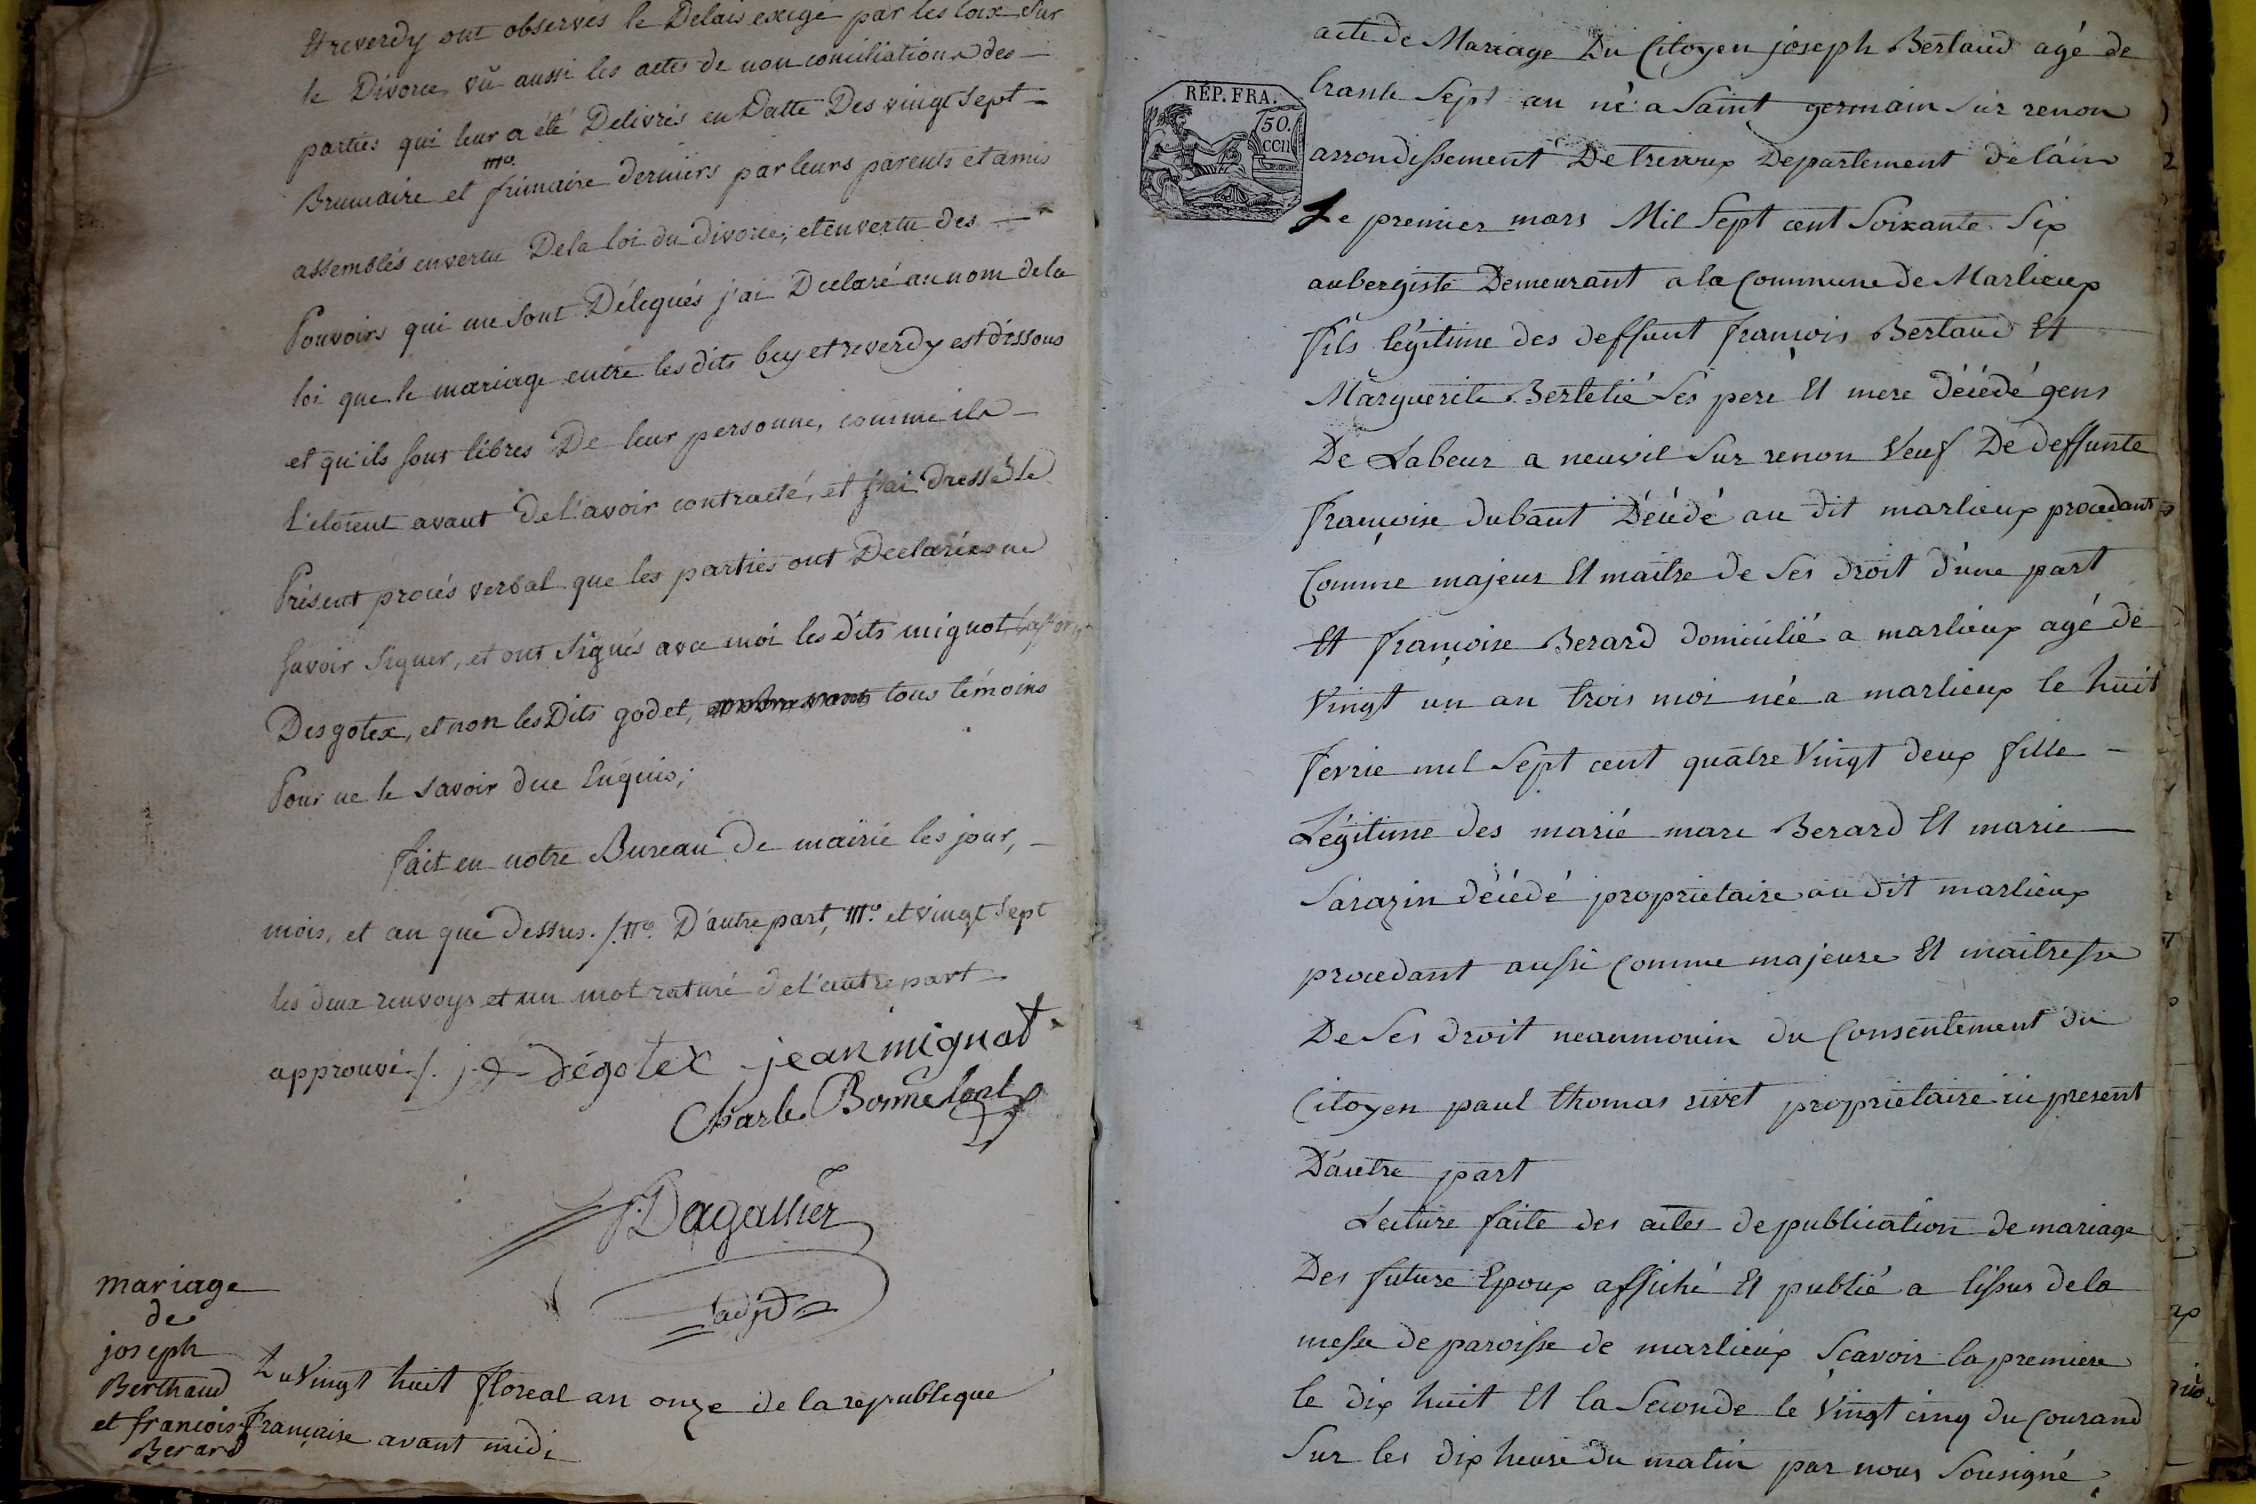 Et reverdy ont observés le Delais exigé par les loix sur
le Divorce, vû aussi les actes de non conciliations des
parties qui leur a été Delivrés en Datte Des vingt sept
Brumaire et frimaire derniers par leurs parents et amis
assemblés en vertu De la loi du divorce, et en vertu des
Pouvoirs qui me sont Délegués j'ai Declaré au nom de la
loi que le mariage entre les dits bey et reverdy est dissous
et qu'ils sont libres De leur personne, comme ils
L'etoient avant De l'avoir contracté, et j'ai Dressé le
Présent procés verbal que les parties ont Declarées ne
savoir signer, et ont signés avec moi les dits mignot
Desgotex, et non les Dits godet, tous témoins
Pour ne le savoir due Enquis;
fait en notre Bureau De mairie les jour,
mois, et an que Dessus. D'autre part, et vingt sept
les deux renvoys et un mot raturé de l'autre part
approuvé /. j Dégotex jean mignot
Charle Bonnefont
Dagallier
adjd
mariage
de
joseph
Berthaud
et francoise
Berard
Du Vingt huit floreal an onze de la republeque
Française avant midi
acte de Mariage Du Citoyen joseph Bertaud agé de
trante sept an né a Saint germain sur renon
RÉP. FRA.
50.
CCII
arrondissement De trevoux Departement de l'ain
Le premier mars Mil sept cent soixante Six
aubergiste Demeurant a la Commune de Marlieux
fils légitime des deffunt françois Bertaud Et
Marguerite Bertelié Ses pere Et mere décédé gens
De Labeur a neuvil sur renon Veuf De deffunte
françoise dubant Décédé au dit marlieux procedant
Comme majeur Et maitre de Ses droit d'une part
Et françoise Berard domicilié a marlieux agé de
Vingt un an trois moi née a marlieux le huit
fevrie mil sept cent quatre Vingt deux fille
Légitime des marié marc Berard Et marie
Sarazin décédé proprietaire au dit marlieux
procedant aussi Comme majeure Et maitresse
De Ses droit neanmouin du Consentement du
Citoyen paul thomas rivet proprietaire ici present
D'autre part
Lecture faite des actes de publication de mariage
Des future Epoux affiché Et publié a lissus de la
messe de paroisse de marlieux Scavoir la premiere
le dix huit Et la Seconde le Vingt cinq du Courand
Sur les dix heure du matin par nous Sousigné